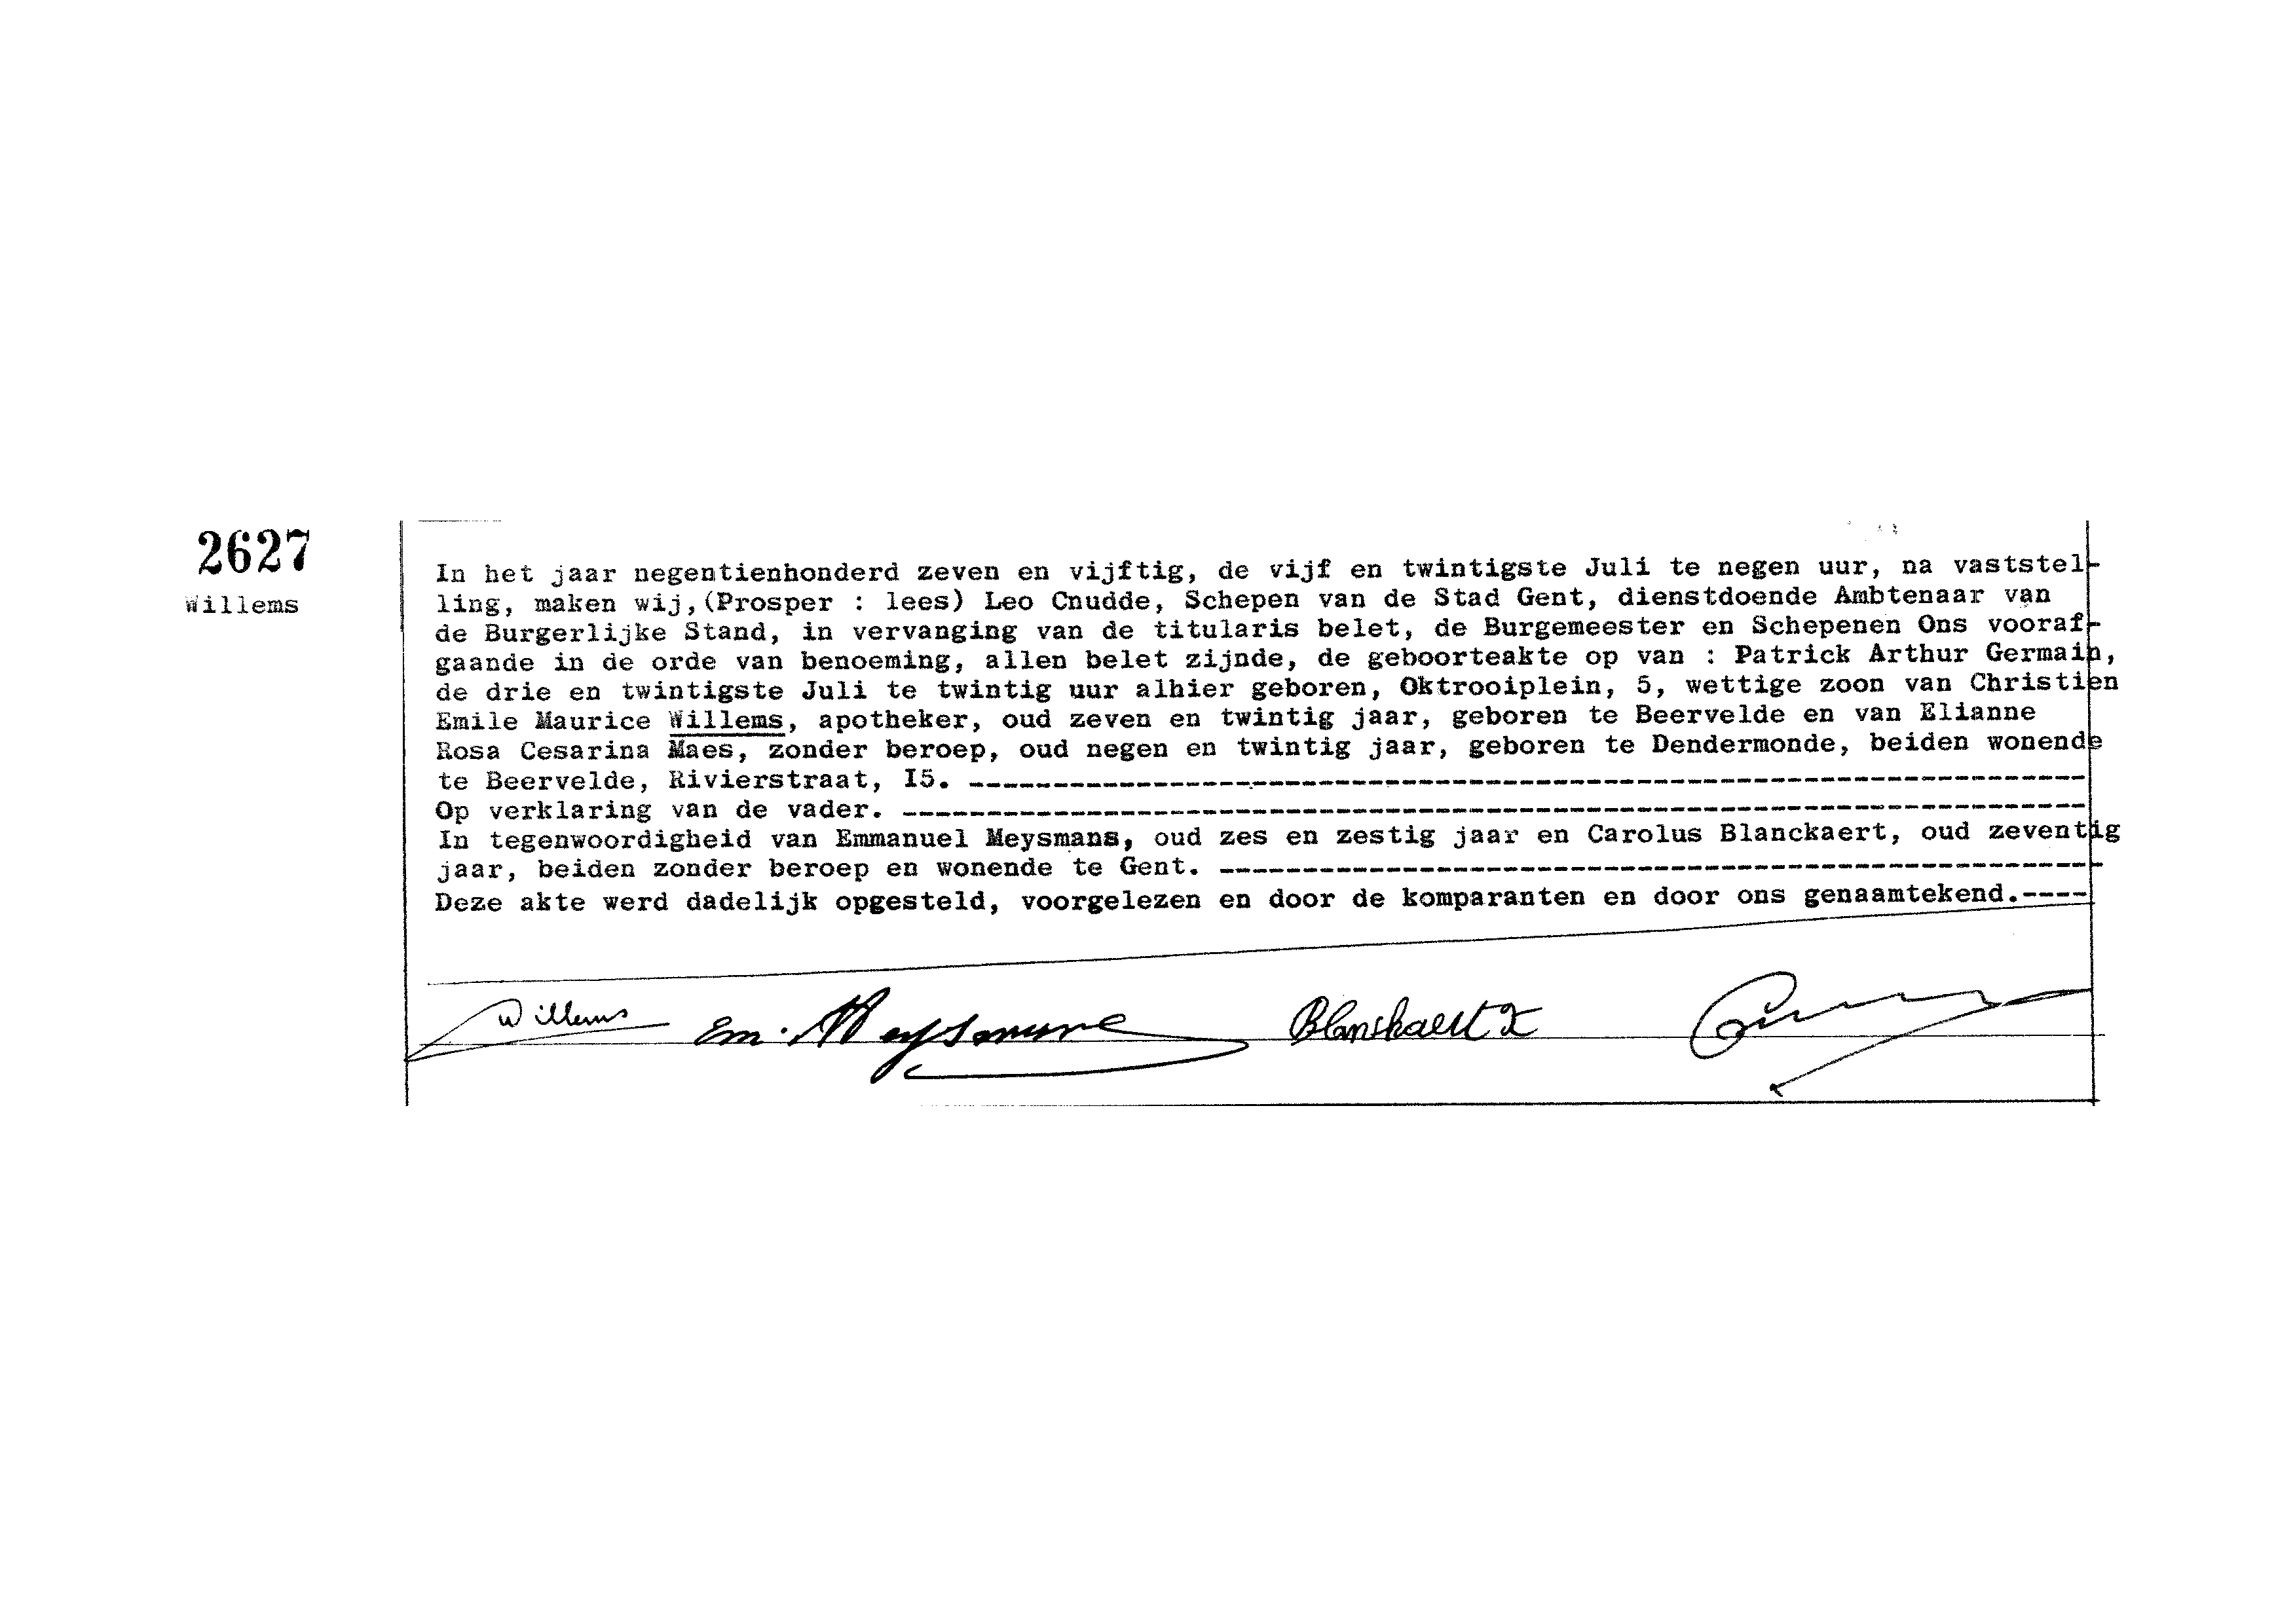 2627
Willems
In het jaar negentienhonderd zeven en vijftig, de vijf en twintigste Juli te negen uur, na vaststel-
ling, maken wij,(Prosper : lees) Leo Cnudde, Schepen van de Stad Gent, dienstdoende Ambtenaar van
de Burgerlijke Stand, in vervanging van de titularis belet, de Burgemeester en Schepenen Ons vooraf-
gaande in de orde van benoeming, allen belet zijnde, de geboorteakte op van : Patrick Arthur Germain,
de drie en twintigste Juli te twintig uur alhier geboren, Oktrooiplein, 5, wettige zoon van Christien
Emile Maurice Willems, apotheker, oud zeven en twintig jaar, geboren te Beervelde en van Elianne
Rosa Cesarina Maes, zonder beroep, oud negen en twintig jaar, geboren te Dendermonde, beiden wonende
te Beervelde, Rivierstraat, I5. ----------------------------------------------------------------
Op verklaring van de vader. --------------------------------------------------------------------
In tegenwoordigheid van Emmanuel Meysmans, oud zes en zestig jaar en Carolus Blanckaert, oud zeventig
jaar, beiden zonder beroep en wonende te Gent. ------------------------------------------------
Deze akte werd dadelijk opgesteld, voorgelezen en door de komparanten en door ons genaamtekend.----
Willems Em. Meysmans Blanckaert